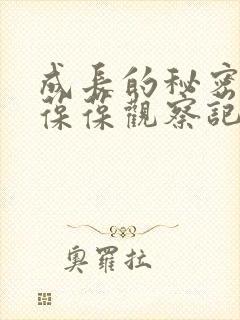 成長的秘密
葆葆觀察記
奧羅拉